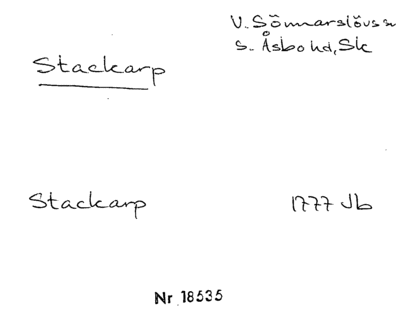 V. Sönnarslövs sn
S. Åsbo hd, Sk
Stackarp
Stackarp 1777 Jb
Nr 18535